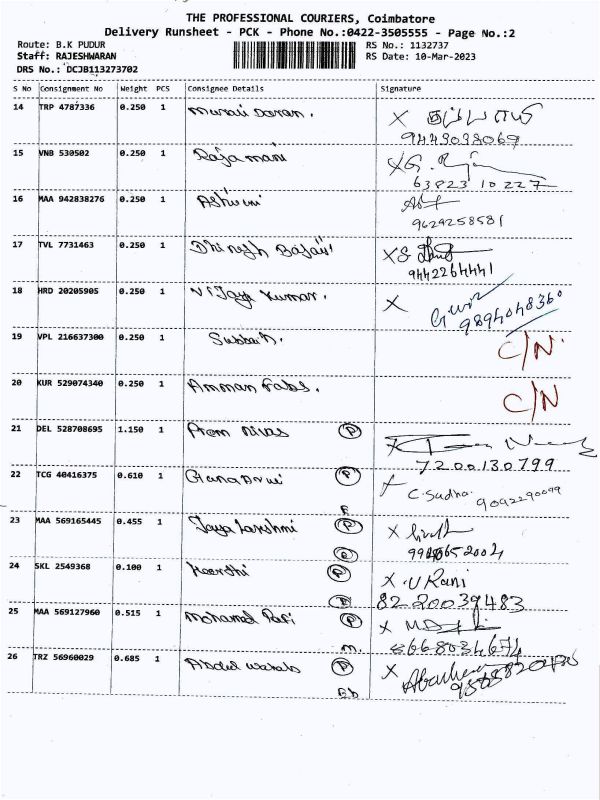 THE PROFESSIONAL COURIERS, Coimbatore
Delivery Runsheet - PCK - Phone No.:0422-3505555 - Page No.:2
Route: B.K PUDUR RS No.: 1132737
Staff: RAJESHWARAN RS Date: 10-Mar-2023
DRS No.: DCJB113273702
S No Consignment No Weight PCS Consignee Details Signature
14 TRP 4787336 0.250 1 Murali Daran.
9443038069
15 VNB 530502 0.250 1 Raja mani
63823 10 227
16 MAA 942838276 0.250 1 Ashwini
9629258581
17 TVL 7731463 0.250 1 Dhinesh Balaji
9442264441
18 HRD 20205905 0.250 1 Vijay Kumar.
9894048360
19 VPL 216637300 0.250 1 C/N
20 KUR 529074340 0.250 1 Amman Fabs. C/N
21 DEL 528708695 1.150 1 Prem Nivas P
7200130799
22 TCG 40416375 0.610 1 P C. Sudha. 9092290099
23 MAA 569165445 0.455 1 Jaya Lakshmi P
24 SKL 2549368 0.100 1 Keerthi P X U Rani
82 20039483
25 MAA 569127960 0.515 1 Mohamed Rafi P
m. 8668034674
26 TRZ 56960029 0.685 1 Abdul Wahab P